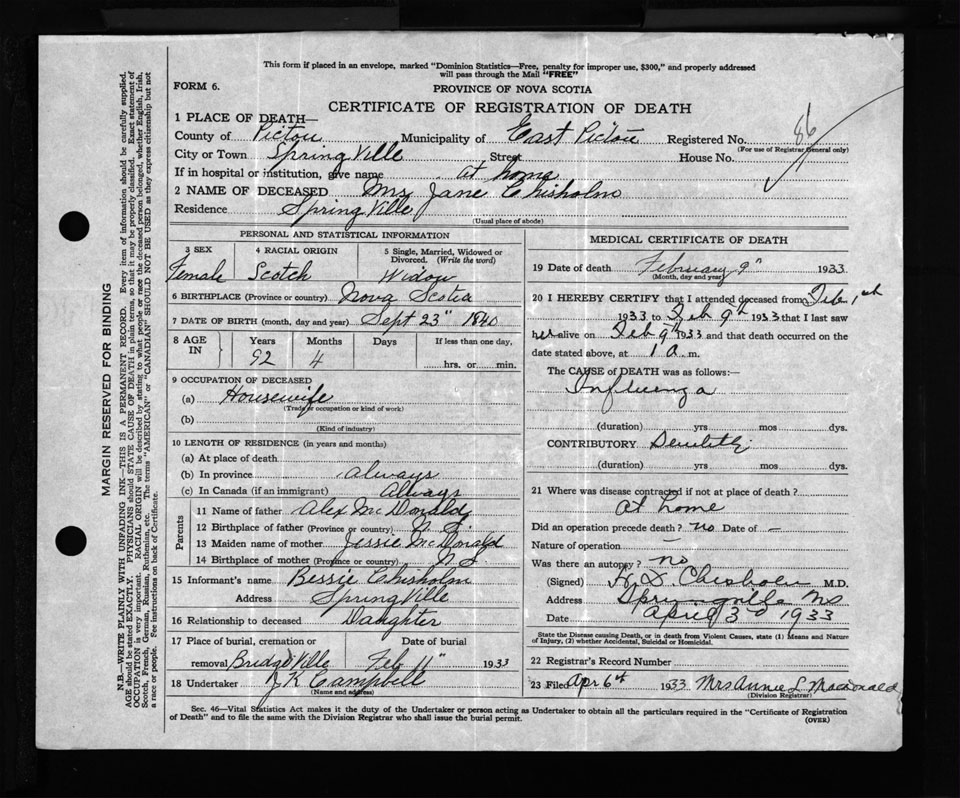 This form if placed in an envelope, marked "Dominion Statistics—Free, penalty for improper use, $300," and properly addressed
will pass through the Mail "FREE"
FORM 6.
PROVINCE OF NOVA SCOTIA
CERTIFICATE OF REGISTRATION OF DEATH
1 PLACE OF DEATH—
County of Pictou Municipality of East Pictou Registered No. 86
(For use of Registrar General only)
City or Town SpringVille Street House No.
If in hospital or institution, give name at home
2 NAME OF DECEASED Mrs Jane Chisholm
Residence SpringVille
(Usual place of abode)
PERSONAL AND STATISTICAL INFORMATION
3 SEX 4 RACIAL ORIGIN 5 Single, Married, Widowed or
Divorced. (Write the word)
Female Scotch Widow
6 BIRTHPLACE (Province or country) Nova Scotia
7 DATE OF BIRTH (month, day and year) Sept 23" 1840
8 AGE IN Years Months Days If less than one day,
92 4 hrs. or min.
9 OCCUPATION OF DECEASED
(a) Housewife
(Trade or occupation or kind of work)
(b)
(Kind of industry)
10 LENGTH OF RESIDENCE (in years and months)
(a) At place of death
(b) In province always
(c) In Canada (if an immigrant) Always
Parents
11 Name of father Alex McDonald
12 Birthplace of father (Province or country) N. S.
13 Maiden name of mother Jessie McDonald
14 Birthplace of mother (Province or country) N S
15 Informant's name Bessie Chisholm
Address SpringVille
16 Relationship to deceased Daughter
17 Place of burial, cremation or Date of burial
removal BridgeVille Feb 11" 1933
18 Undertaker J K Campbell
(Name and address)
MEDICAL CERTIFICATE OF DEATH
19 Date of death February 9" 1933
(Month, day and year)
20 I HEREBY CERTIFY that I attended deceased from Feb 1st
1933 to Feb 9th 1933 that I last saw
her alive on Feb 9th 1933 and that death occurred on the
date stated above, at 1 a m.
The CAUSE of DEATH was as follows:
Influenza
(duration) yrs mos dys.
CONTRIBUTORY Senility
(duration) yrs mos dys.
21 Where was disease contracted if not at place of death?
At home
Did an operation precede death? no Date of —
Nature of operation —
Was there an autopsy? no
(Signed) Chisholm M.D.
Address Springville NS
Date April 3rd 1933
State the Disease causing Death, or in death from Violent Causes, state (1) Means and Nature
of Injury, (2) whether Accidental, Suicidal or Homicidal.
22 Registrar's Record Number
23 Filed Apr 6th 1933. Mrs Annie L Macdonald
(Division Registrar)
Sec. 46—Vital Statistics Act makes it the duty of the Undertaker or person acting as Undertaker to obtain all the particulars required in the "Certificate of Registration
of Death" and to file the same with the Division Registrar who shall issue the burial permit.
(OVER)
MARGIN RESERVED FOR BINDING
N.B.—WRITE PLAINLY WITH UNFADING INK—THIS IS A PERMANENT RECORD. Every item of information should be carefully supplied.
AGE should be stated EXACTLY. PHYSICIANS should STATE CAUSE OF DEATH in plain terms, so that it may be properly classified. Exact statement of
OCCUPATION is very important. RACIAL ORIGIN will be described by stating to what people or race the deceased person belonged, whether English, Irish,
Scotch, French, German, Russian, Ruthenian, etc. The terms "AMERICAN" or "CANADIAN" SHOULD NOT BE USED as they express citizenship but not
a race or people. See instructions on back of Certificate.